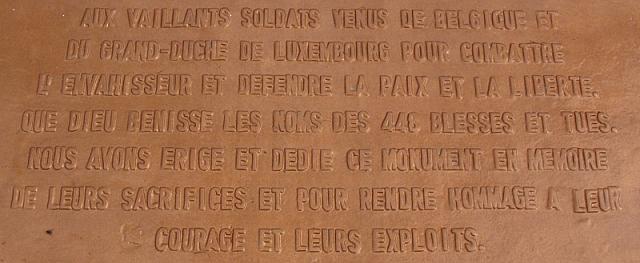 AUX VAILLANTS SOLDATS VENUS DE BELGIQUE ET
DU GRAND-DUCHE DE LUXEMBOURG POUR COMBATTRE
L'ENVAHISSEUR ET DEFENDRE LA PAIX ET LA LIBERTE.
QUE DIEU BENISSE LES NOMS DES 448 BLESSES ET TUES.
NOUS AVONS ERIGE ET DEDIE CE MONUMENT EN MEMOIRE
DE LEURS SACRIFICES ET POUR RENDRE HOMMAGE A LEUR
COURAGE ET LEURS EXPLOITS.